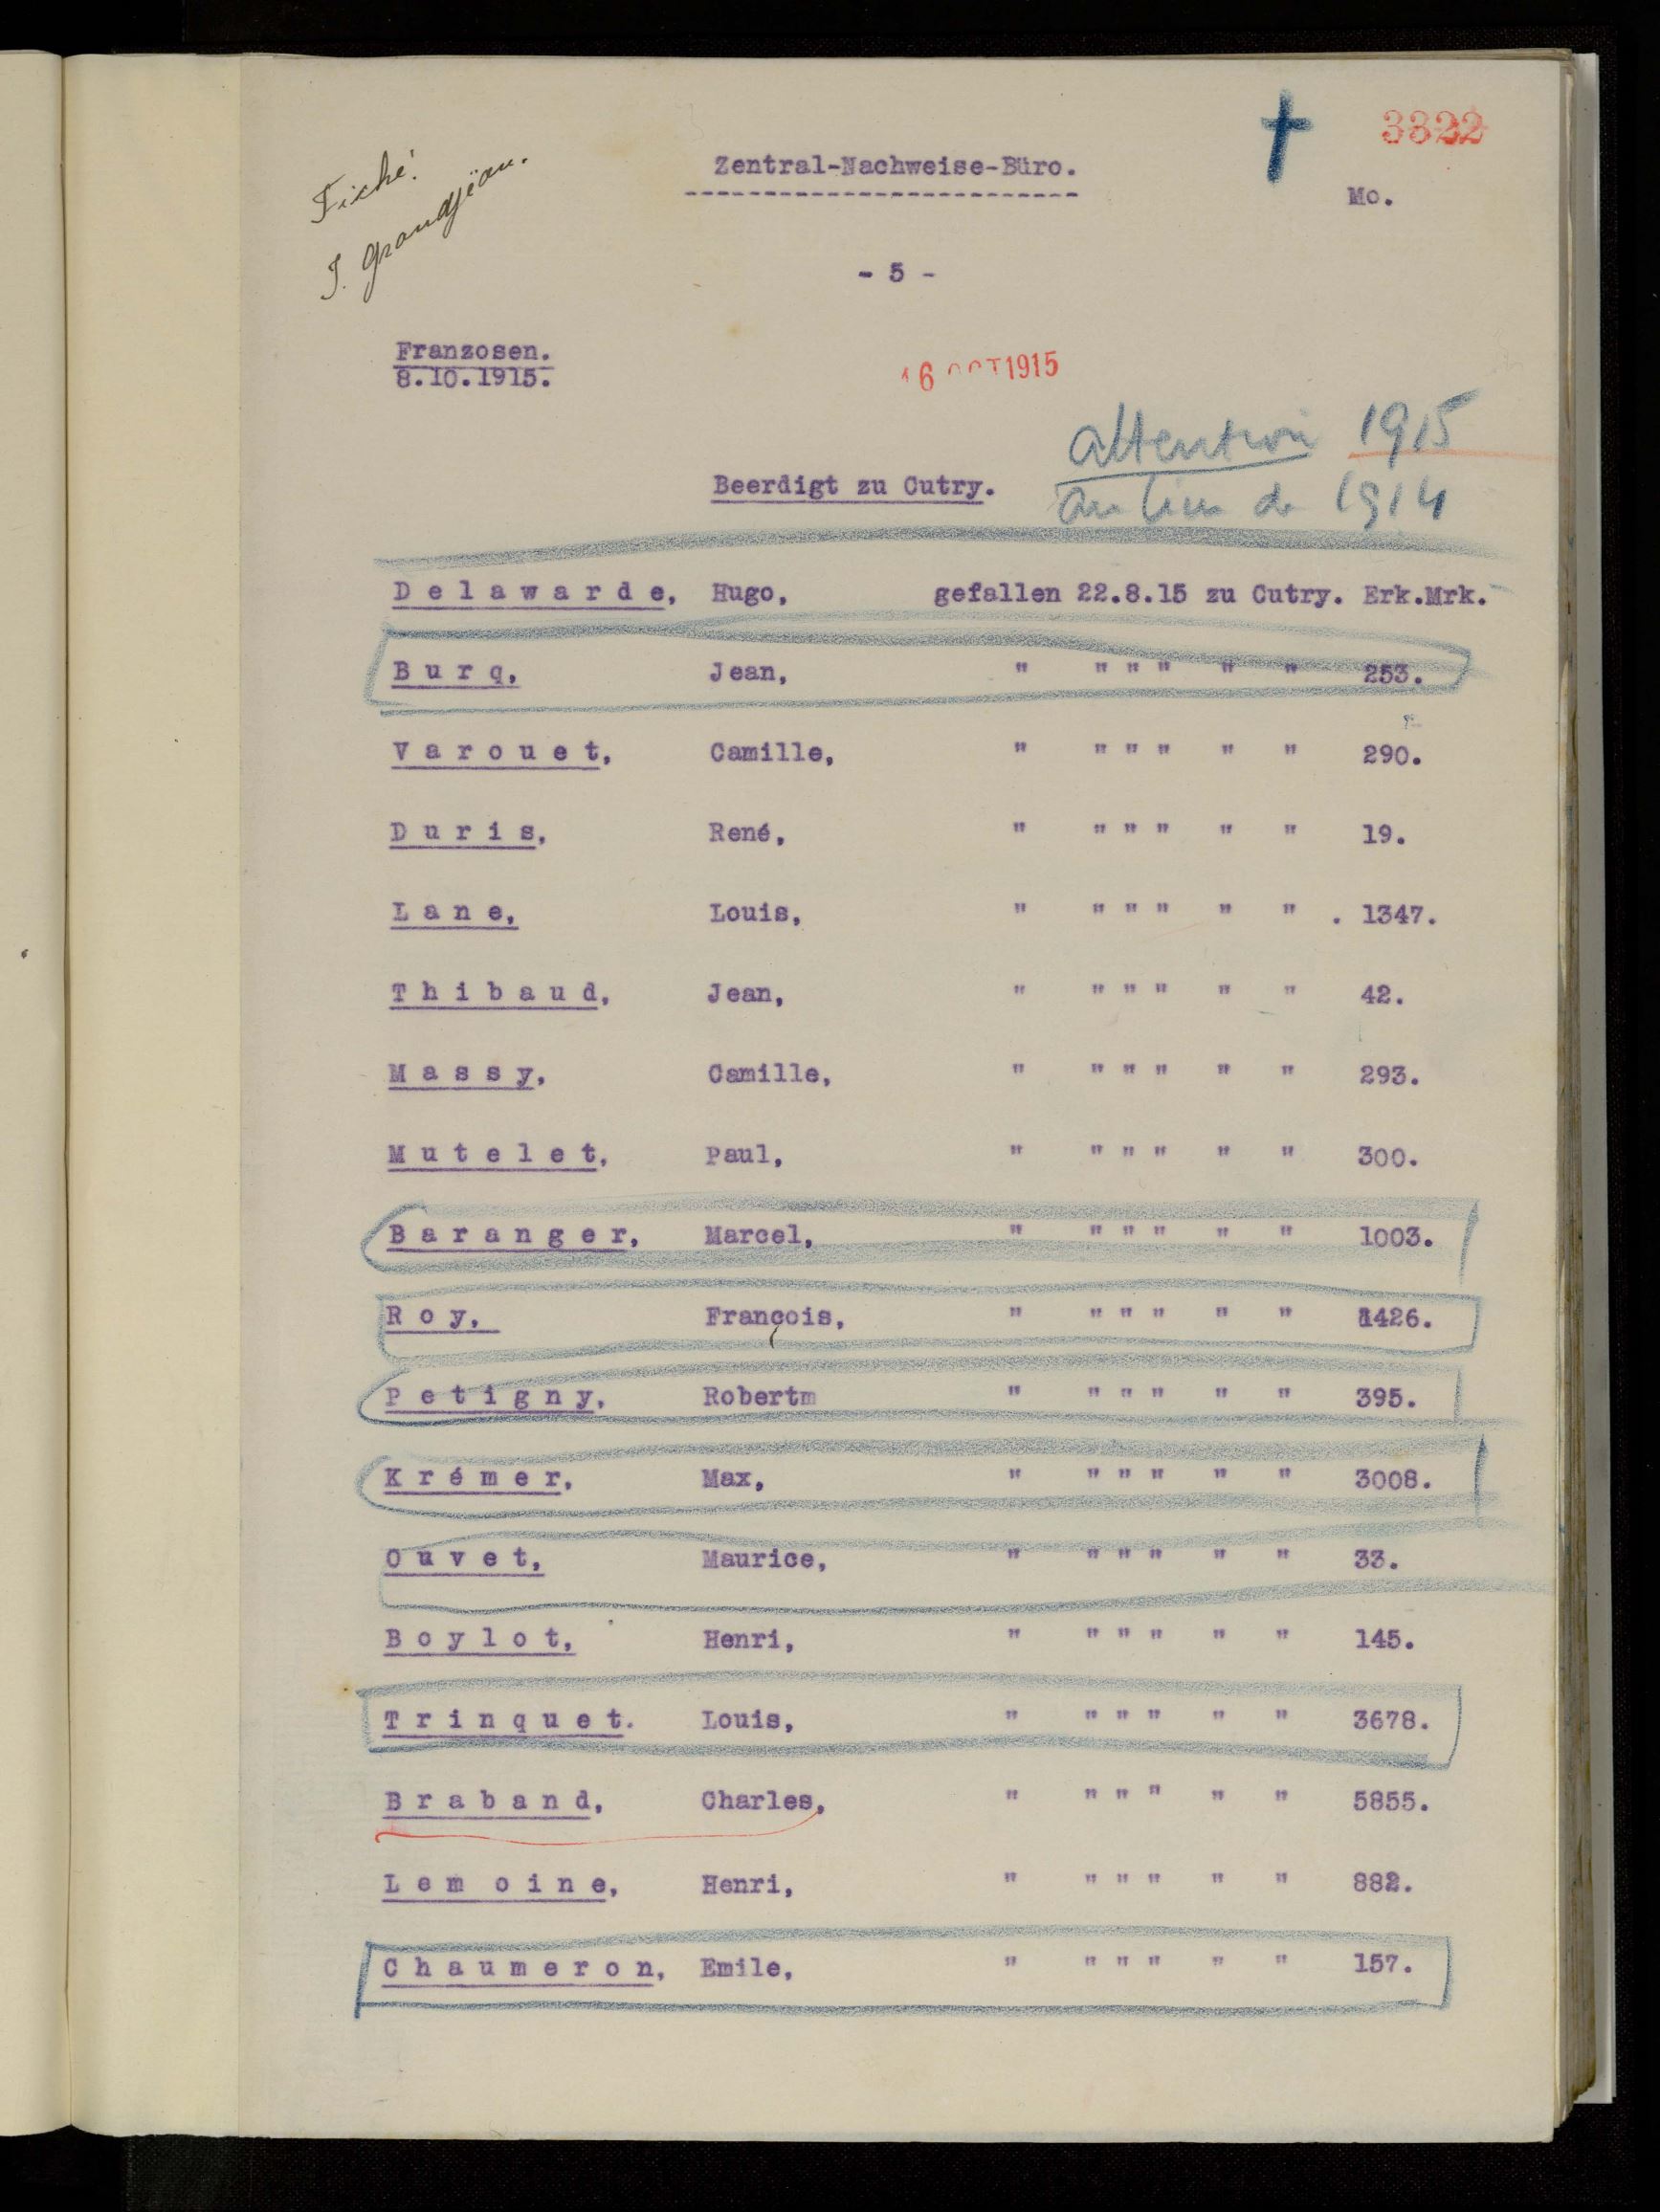 3322
Zentral-Nachweise-Büro.
Mo.
Fiché!
J. Grandjean.
- 5 -
Franzosen.
8.10.1915.
16 OCT 1915
attention 1915
au lieu de 1914
Beerdigt zu Cutry.
Delawarde, Hugo, gefallen 22.8.15 zu Cutry. Erk.Mrk.
Burq, Jean, " " " " " " 253.
Varouet, Camille, " " " " " " 290.
Duris, René, " " " " " " 19.
Lane, Louis, " " " " " " . 1347.
Thibaud, Jean, " " " " " " 42.
Massy, Camille, " " " " " " 293.
Mutelet, Paul, " " " " " " 300.
Baranger, Marcel, " " " " " " 1003.
Roy, François, " " " " " " 1426.
Petigny, Robertm " " " " " " 395.
Krémer, Max, " " " " " " 3008.
Ouvet, Maurice, " " " " " " 33.
Boylot, Henri, " " " " " " 145.
Trinquet. Louis, " " " " " " 3678.
Braband, Charles, " " " " " " 5855.
Lemoine, Henri, " " " " " " 882.
Chaumeron, Emile, " " " " " " 157.